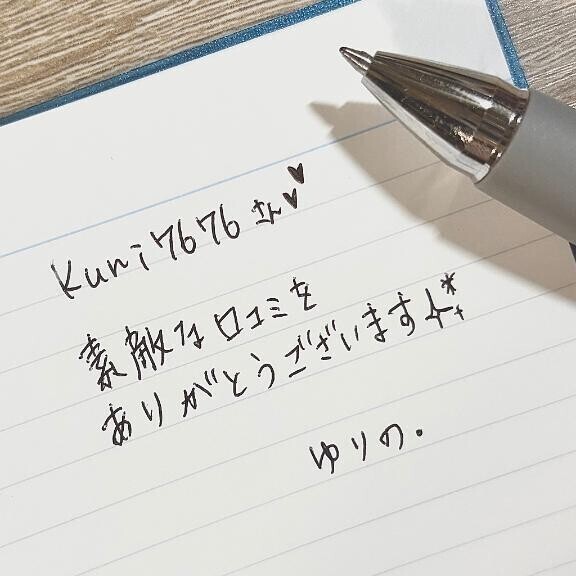 Kuni7676さん♥♥
素敵な口コミを
ありがとうございます
ゆりの.